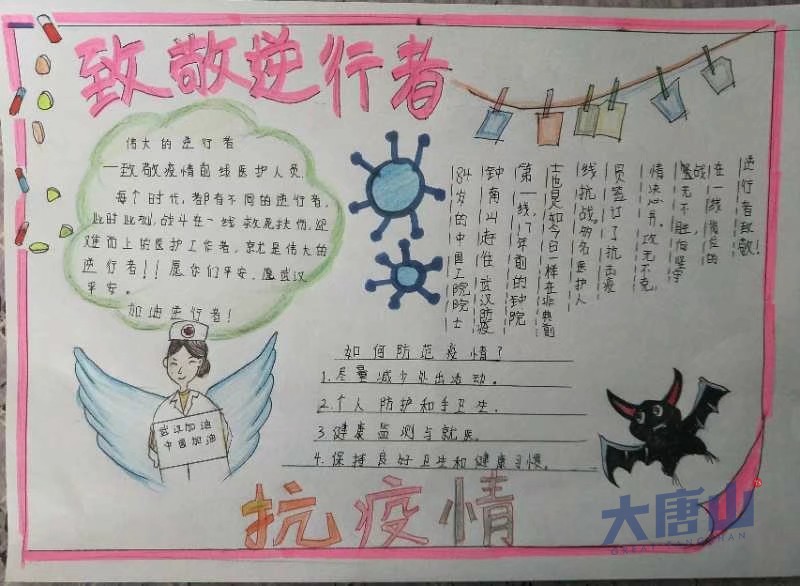 致敬逆行者
伟大的逆行者
—致敬疫情前线医护人员
每个时代,都有不同的逆行者,
此时此刻,战斗在一线救死扶伤,迎
难而上的医护工作者,就是伟大的
逆行者!!愿你们平安,愿武汉
平安。
加油逆行者!
武汉加油
中国加油
84岁的中国工院院士
钟南山赶往武汉防疫
第一线,17年前的钟院
士也是如今日一样在非典前
线抗战。多名医护人
员签订了抗击疫
情决心书,攻无不克,
战无不胜,向坚守
在一线岗位的
逆行者致敬!
如何防范疫情?
1.尽量减少外出活动。
2.个人防护和手卫生.
3.健康监测与就医.
4.保持良好卫生和健康习惯。
抗疫情
大唐山
GREAT TANGSHAN